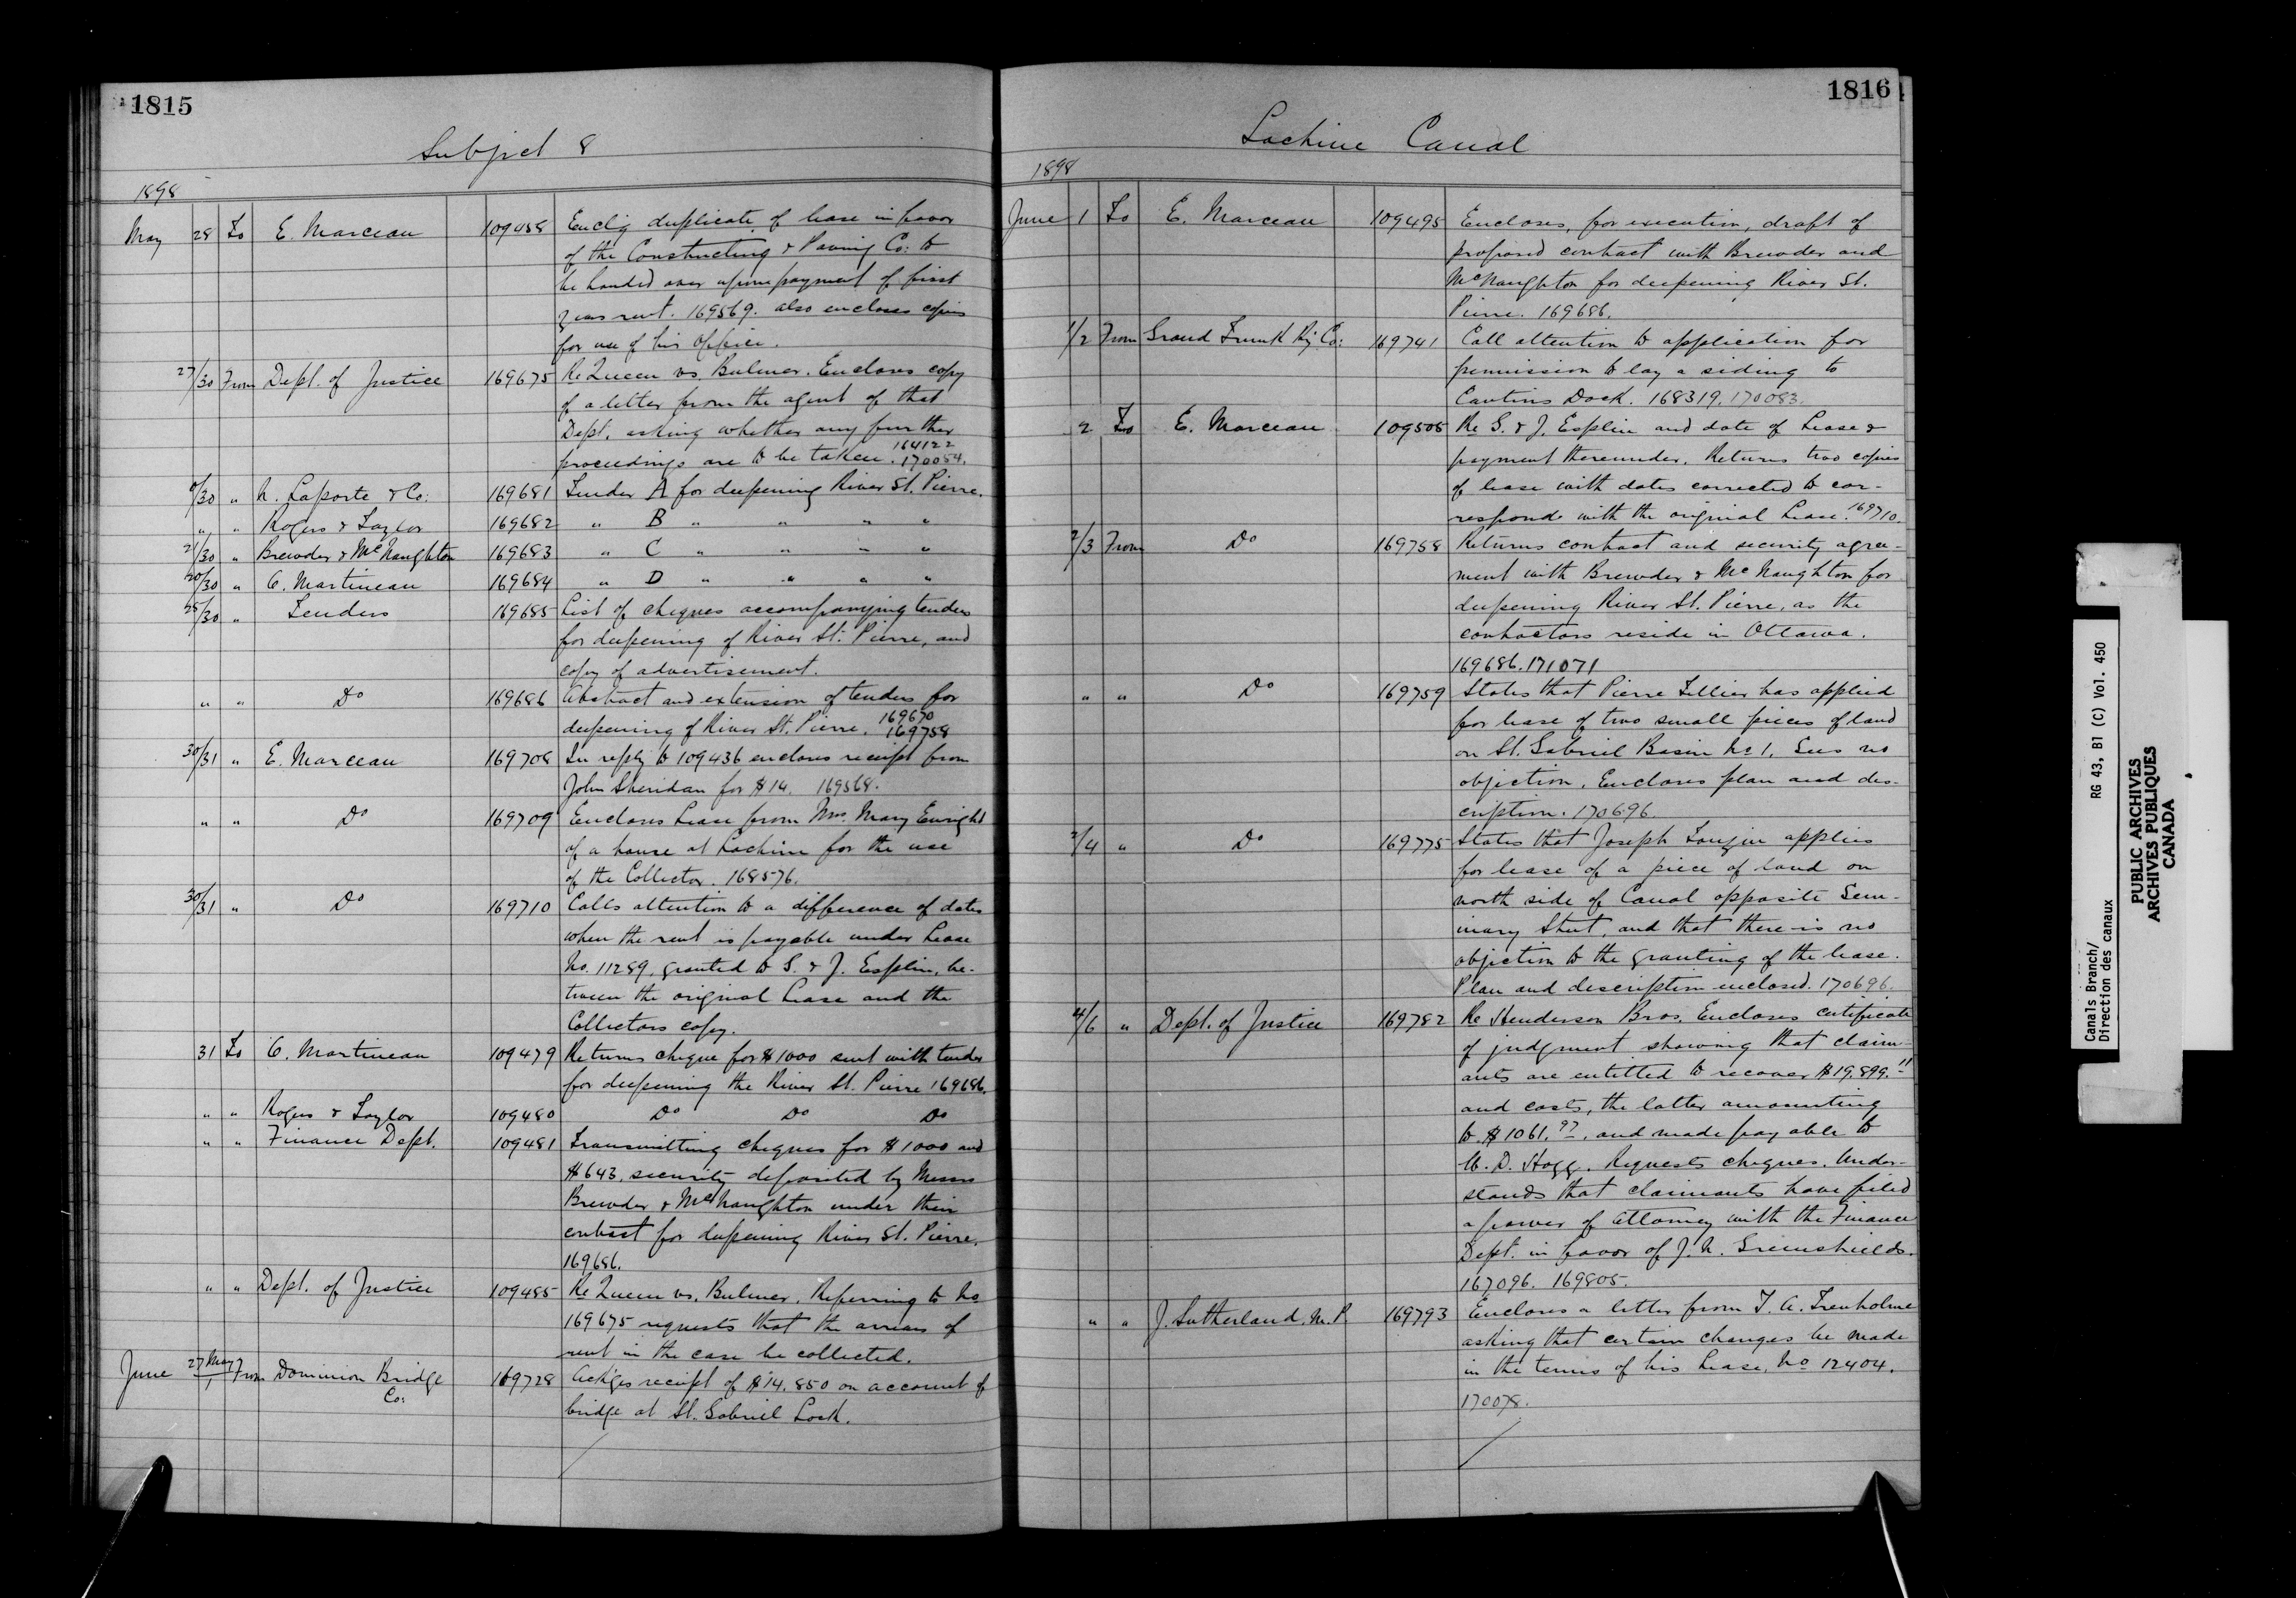 1815
Subject 8
1898
May 28 To E. Marceau 109458 Enclg duplicate of lease in favor
of the Constructing & Paving Co: to
be handed over upon payment of first
years rent. 169569. also encloses copies
for use of his office.
27/30 From Dept. of Justice 169675 Re Queen vs. Bulmer. Encloses copy
of a letter from the agent of that
Dept. asking whether any further
proceedings are to be taken. 164122
170054.
/30 " Laporte & Co: 169681 Tender A for deepening River St. Pierre.
" " Rogers & Taylor 169682 " B " " " "
21/30 " Brewder & McNaughton 169683 " C " " " "
20/30 " O. Martineau 169684 " D " " " "
28/30 " Tenders 169685 List of cheques accompanying tenders
for deepening of River St. Pierre, and
copy of advertisement.
" " Do 169686 Abstract and extension of tenders for
deepening of River St. Pierre. 169670
169758
30/31 " E. Marceau 169708 In reply to 109436 encloses receipt from
John Sheridan for $14. 169568.
" " Do 169709 Encloses Lease from Mrs. Mary Enright
of a house at Lachine for the use
of the Collector. 168576.
30/31 " Do 169710 Calls attention to a difference of dates
when the rent is payable under Lease
No. 11289, granted to S. & J. Esplin, be-
tween the original Lease and the
Collectors copy.
31 To O. Martineau 109479 Returns cheque for $1000 sent with tender
for deepening the River St. Pierre 169686.
" " Rogers & Taylor 109480 Do Do Do
" " Finance Dept. 109481 Transmitting cheques for $1000 and
$643, security deposited by Messrs
Brewder & McNaughton under their
contract for deepening River St. Pierre.
169686.
" " Dept. of Justice 109485 Re Queen vs. Bulmer. Referring to No
169675 requests that the arrears of
rent in the case be collected.
June 27 May/1 From Dominion Bridge 169728 Ackges receipt of $14,850 on account of
Co:
bridge at St. Gabriel Lock.
1816
Lachine Canal
1898
June 1 To E. Marceau 109495 Encloses, for execution, draft of
proposed contract with Brewder and
McNaughton for deepening River St.
Pierre. 169686.
1/2 From Grand Trunk Ry Co: 169741 Call attention to application for
permission to lay a siding to
Cantins Dock. 168319. 170083.
2 To E. Marceau 109505 Re S. & J. Esplin and date of Lease &
payment thereunder. Returns two copies
of lease with dates corrected to cor-
respond with the original Lease. 169710.
2/3 From Do 169758 Returns contract and security agree-
ment with Brewder & McNaughton for
deepening River St. Pierre, as the
contractors reside in Ottawa.
169686. 171071
" " Do 169759 States that Pierre Tellier has applied
for lease of two small pieces of land
on St. Gabriel Basin No 1, Sees no
objection. Encloses plan and des-
cription. 170696.
2/4 " Do 169775 States that Joseph applies
for lease of a piece of land on
north side of Canal opposite Sem-
inary Street, and that there is no
objection to the granting of the lease.
Plan and description enclosed. 170696.
4/6 " Dept. of Justice 169782 Re Henderson Bros. Encloses certificate
of judgment showing that claim-
ants are entitled to recover $19,899.11
and costs, the latter amounting
to $1061.97, and made payable to
W. D. Hogg. Requests cheques. Under-
stands that claimants have filed
a power of Attorney with the Finance
Dept. in favor of J. N. Greenshields.
167096. 169805.
" " J. Sutherland, M.P. 169793 Encloses a letter from T. A. Trenholme
asking that certain changes be made
in the terms of his Lease, No 12404.
170078.
Canals Branch/
Direction des canaux
RG 43, B1 (C) Vol. 450
PUBLIC ARCHIVES
ARCHIVES PUBLIQUES
CANADA